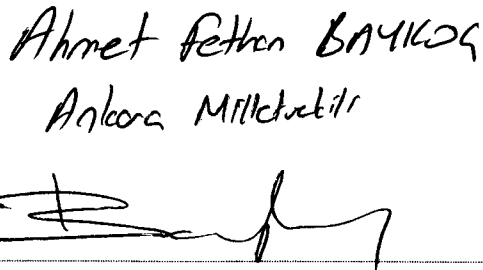 Ahmet Fethan BAYKOÇ
Ankara Milletvekili